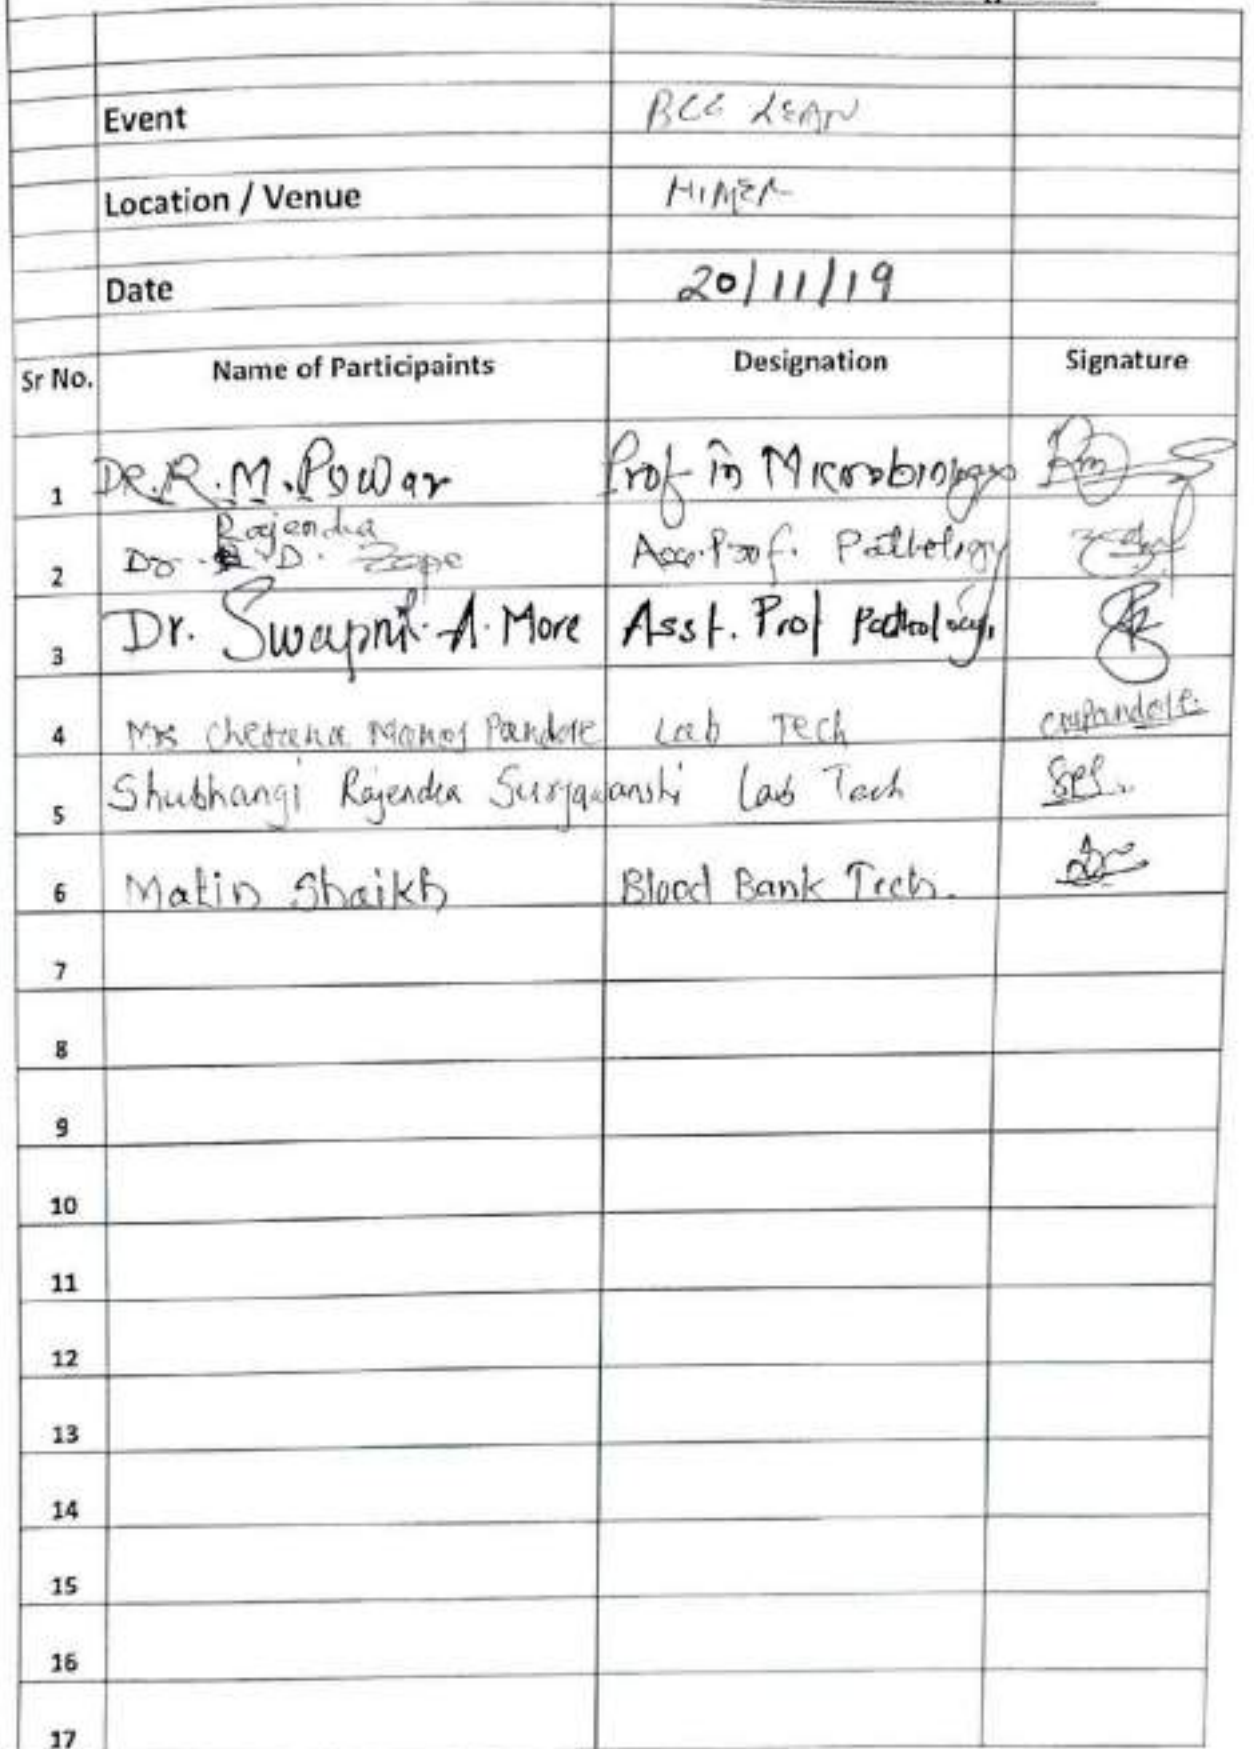 Event
Location / Venue
Date 20/11/19
Sr No. Name of Participaints Designation Signature
1 Dr. R. M. Powar Prof in Microbiology
Rajendra
2 Dr. D. Zope Asso. Prof. Pathology
3 Dr. Swapnil A. More Asst. Prof Pathology
4 Mrs Chetana Manoj Pandore Lab Tech cmpandore
5 Shubhangi Rajendra Suryawanshi Lab Tech
6 Matin Shaikh Blood Bank Tech.
7
8
9
10
11
12
13
14
15
16
17